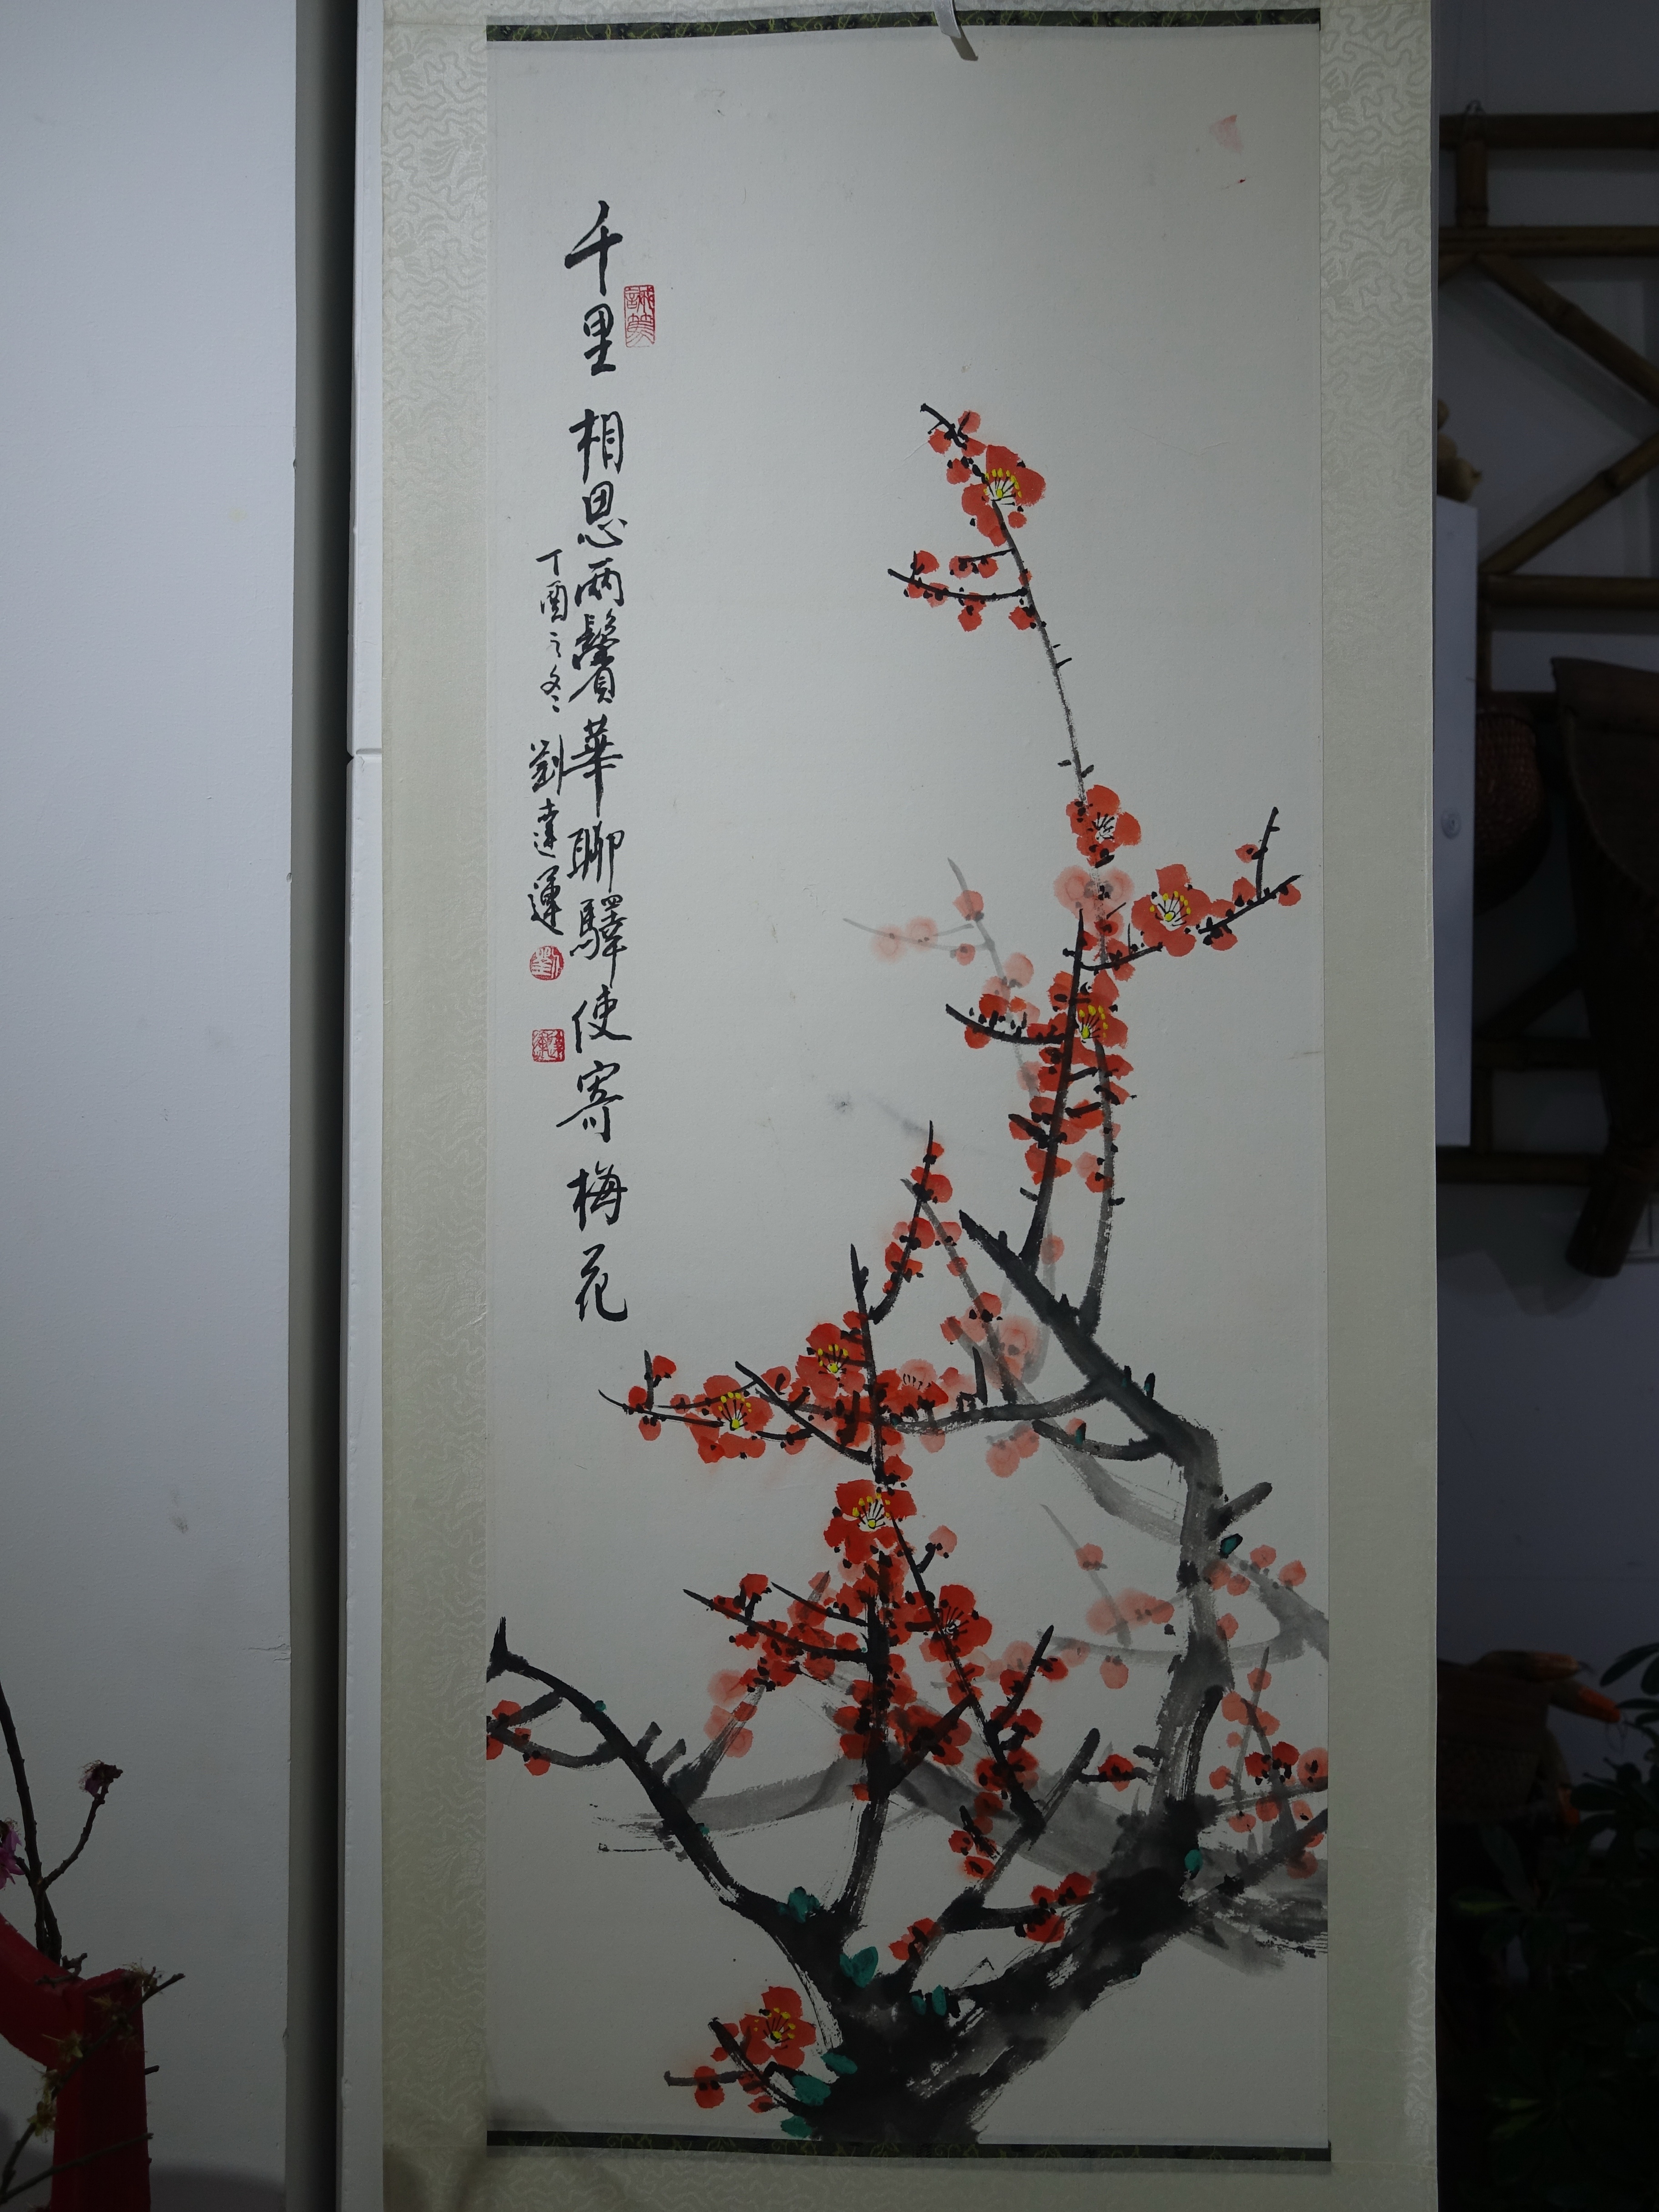 千里相思兩鬢華聊驛使寄梅花
丁酉之冬劉達運
誠篤